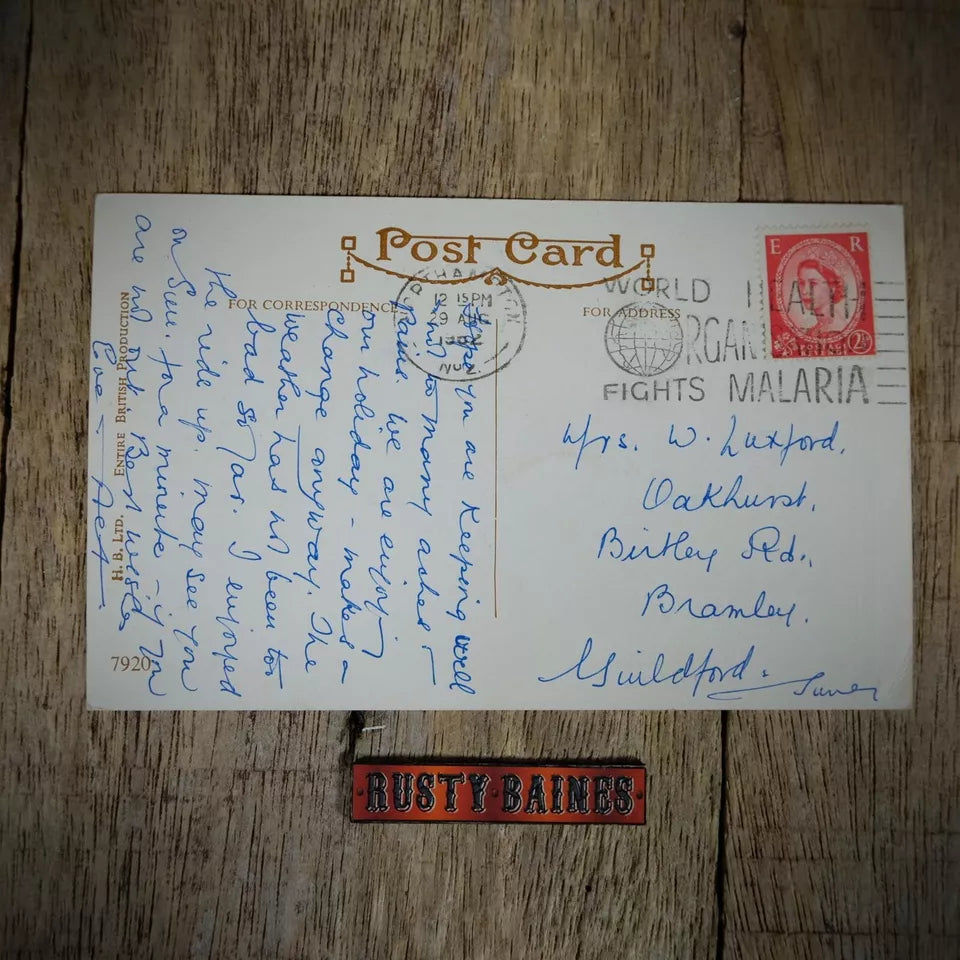 Post Card
FOR CORRESPONDENCE
FOR ADDRESS
12 15 PM
9 AUG
WORLD HEALTH
ORGAN
FIGHTS MALARIA
E R
POSTAGE
REVENUE
2½D
Hope you are keeping well
and not too many aches &
pains. We are enjoying
our holiday - makes a
change anyway. The
weather has not been too
bad so far. I enjoyed
the ride up. May see you
on Sun. for a minute - if you
are not out. Best wishes
Eva -
Mrs. W. Luxford,
Oakhurst,
Birtley Rd.,
Bramley.
Guildford. Surrey
H. B. LTD. ENTIRE BRITISH PRODUCTION
7920
RUSTY·BAINES